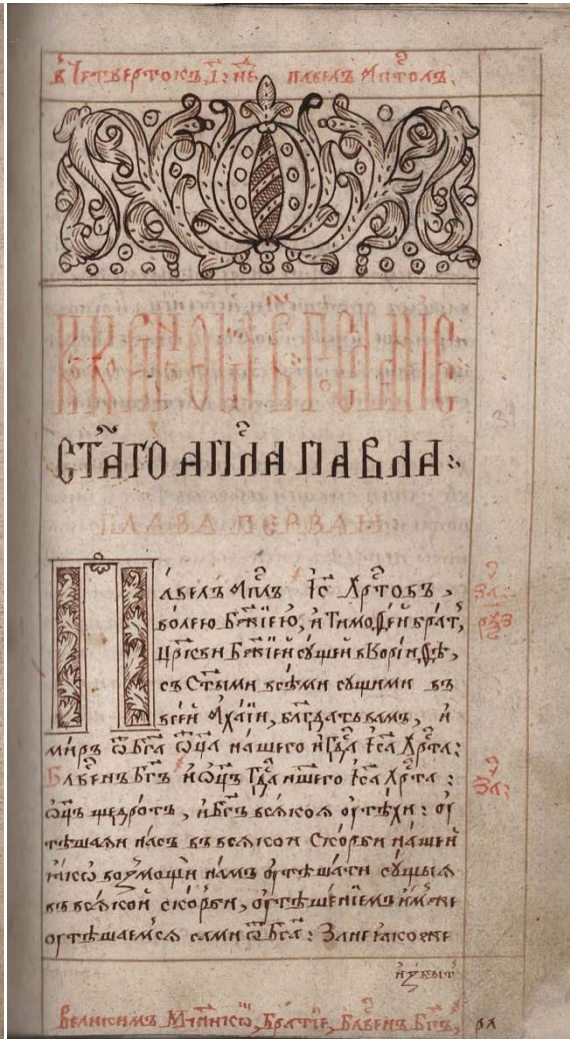 в Четвертокъ, і҃: нє҃ Павелъ Аптⷭ҇олъ.
К КОРИНѲ ВТ ПОСЛАНІЕ
СТ҃АГО АПⷭ҇ЛА ПАВЛА:
ГЛАВА ПЕРВАЯ:
Павелъ Апⷭ҇лъ Іс҃ Хрⷭ҇товъ,
волею Бж҃їею, и Тимоѳей братъ,
Црⷦ҇ви Бж҃їей сущей в Коринѳѣ,
съ Ст҃ыми всѣми сущими въ
всей Ахаїи, блгⷣать вамъ, и
миръ ѿ Бг҃а Оц҃а нашего и Гдⷭ҇а Іс҃а Хрⷭ҇та:
Блⷭ҇венъ Бг҃ъ и Оц҃ъ Гдⷭ҇а ншего Іс҃а Хрⷭ҇та:
Оц҃ъ щедротъ, и Бг҃ъ всякоя оутѣхи: оу
тѣшаяи насъ въ всякой скорби нашей
ꙗко возмощи намъ оутѣшати сущыя
въ всякой скорби, оутѣшенїемъ имже
оутѣшаемся сами ѿ Бг҃а: Зане ꙗкоже
избыт
Братїе, Блⷭ҇венъ Бг҃ъ,